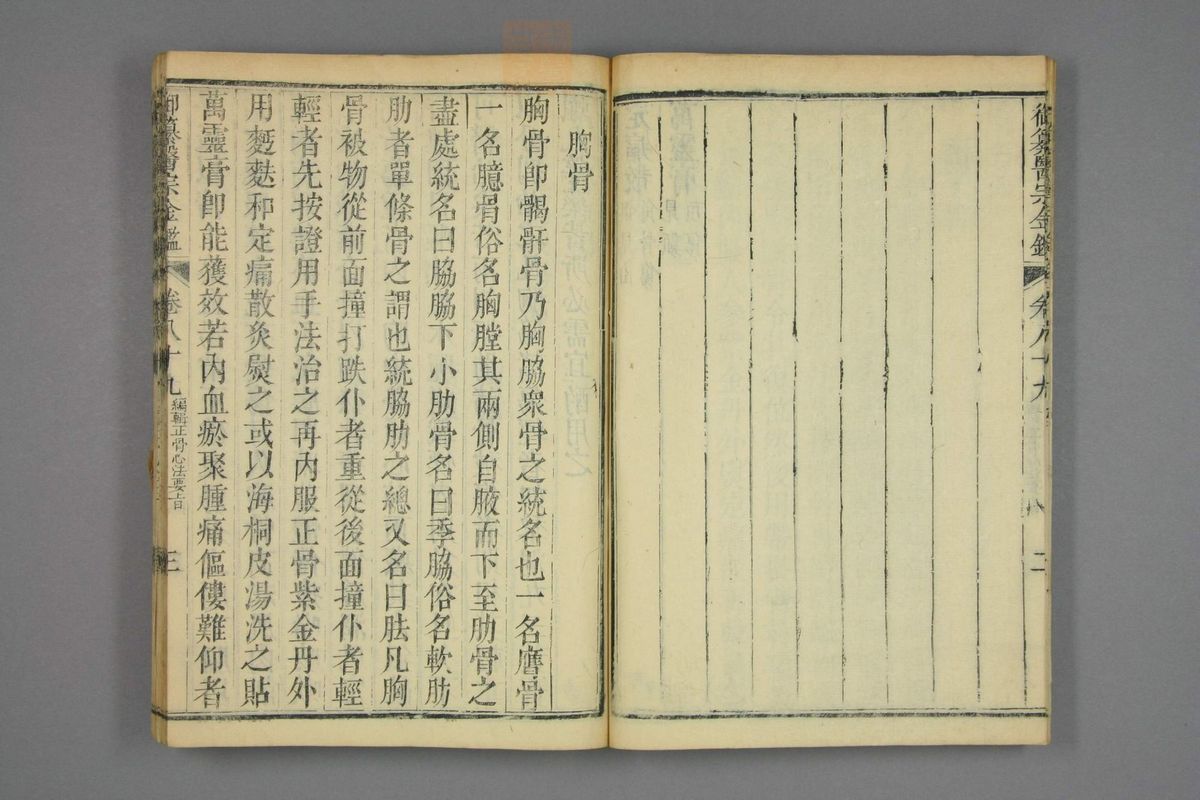 御纂醫宗金鑑 卷八十九 二
胸骨
胸骨卽髑骬骨乃胸脇衆骨之統名也一名膺骨
一名臆骨俗名胸膛其兩側自腋而下至肋骨之
盡處統名曰脇脇下小肋骨名曰季脇俗名軟肋
肋者單條骨之謂也統脇肋之總又名曰胠凡胸
骨被物從前面撞打跌仆者重從後面撞仆者輕
輕者先按證用手法治之再內服正骨紫金丹外
用面麩和定痛散灸熨之或以海桐皮湯洗之貼
萬靈膏卽能獲效若內血瘀聚腫痛傴僂難仰者
御纂醫宗金鑑 卷八十九 編輯正骨心法要旨 三